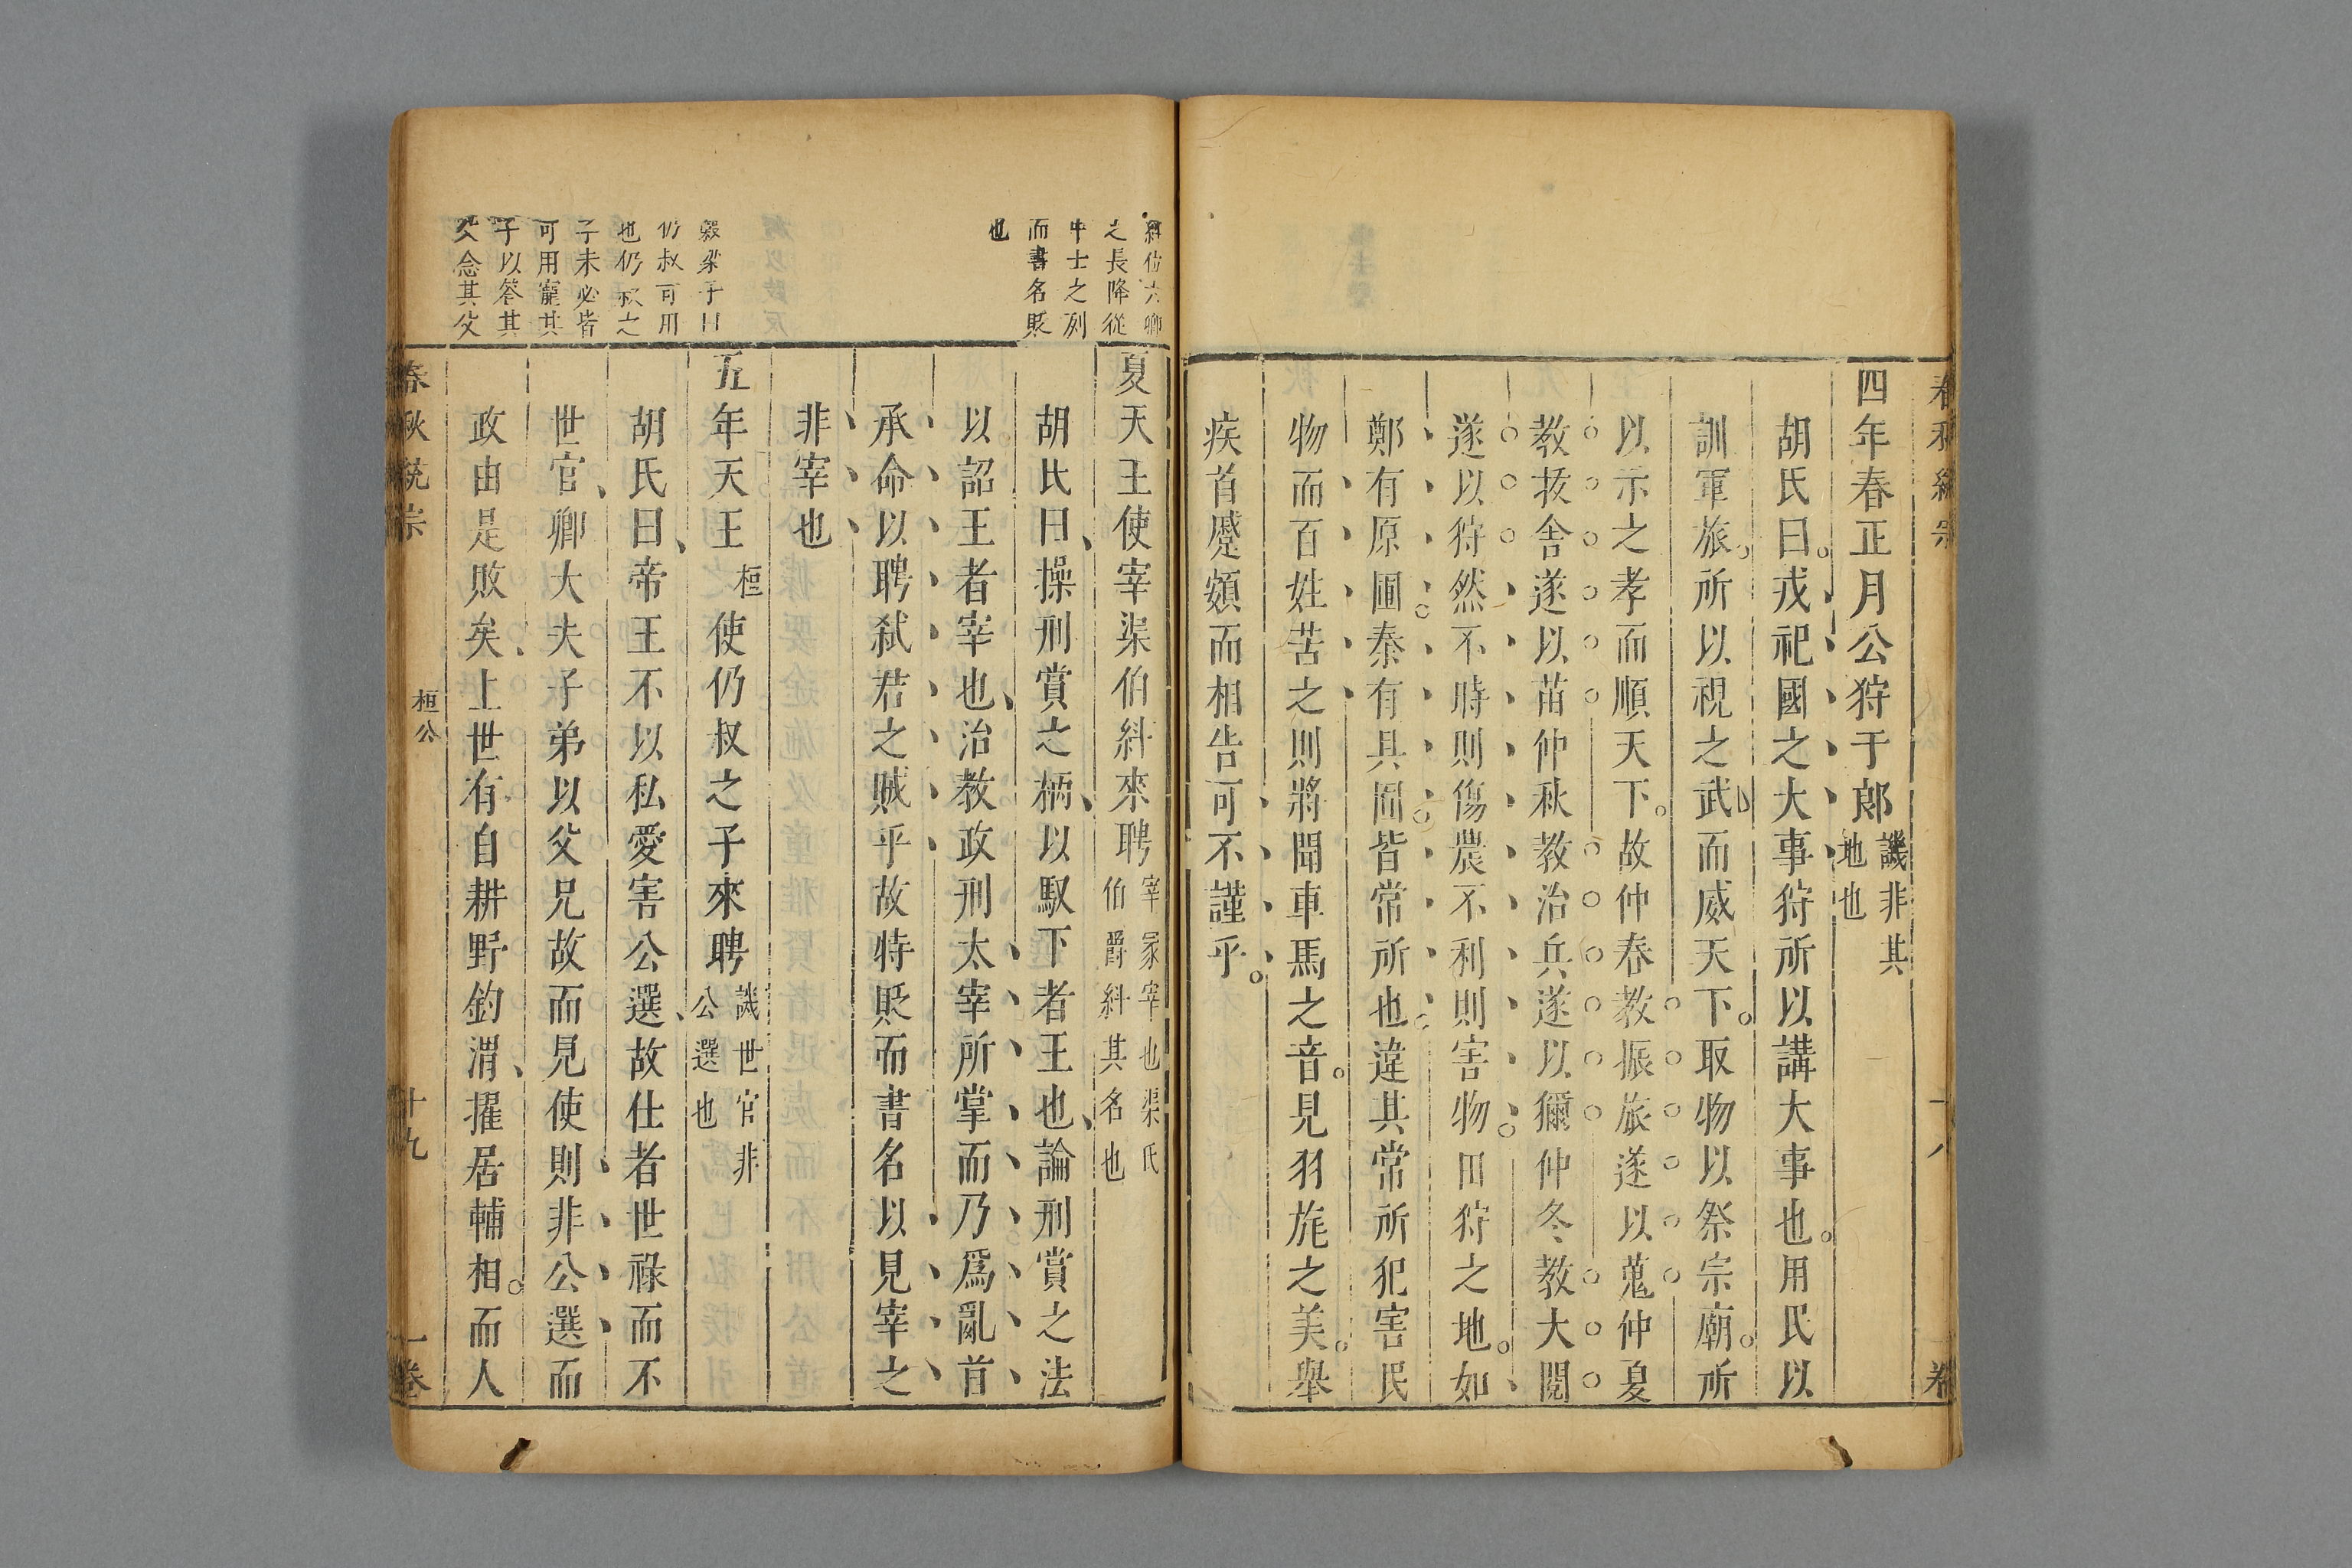 四年春正月公狩于郎譏非其地也
胡氏曰戎祀國之大事狩所以講大事也用民以
訓軍旅所以視之武而威天下取物以祭宗廟所
以示之孝而順天下故仲春教振旅遂以蒐仲夏
教茇舍遂以苗仲秋教治兵遂以獮仲冬教大閱
遂以狩然不時則傷農不利則害物田狩之地如
鄭有原圃秦有具囿皆常所也違其常所犯害民
物而百姓苦之則將聞車馬之音見羽旄之美舉
疾首蹙頞而相告可不謹乎
糾位六卿
之長降從
中士之列
而書名貶
也
夏天王使宰渠伯糾來聘宰冢宰也渠氏伯爵糾其名也
胡氏曰操刑賞之柄以馭下者王也論刑賞之法
以詔王者宰也治教政刑太宰所掌而乃爲亂首
承命以聘弑君之賊乎故特貶而書名以見宰之
非宰也
穀梁子曰
仍叔可用
也仍叔之
子未必皆
可用寵其
子以答其
父念其父
五年天王桓使仍叔之子來聘譏世官非公選也
胡氏曰帝王不以私愛害公選故仕者世祿而不
世官卿大夫子弟以父兄故而見使則非公選而
政由是敗矣上世有自耕野釣渭擢居輔相而人
春秋統宗 桓公 十九 一卷